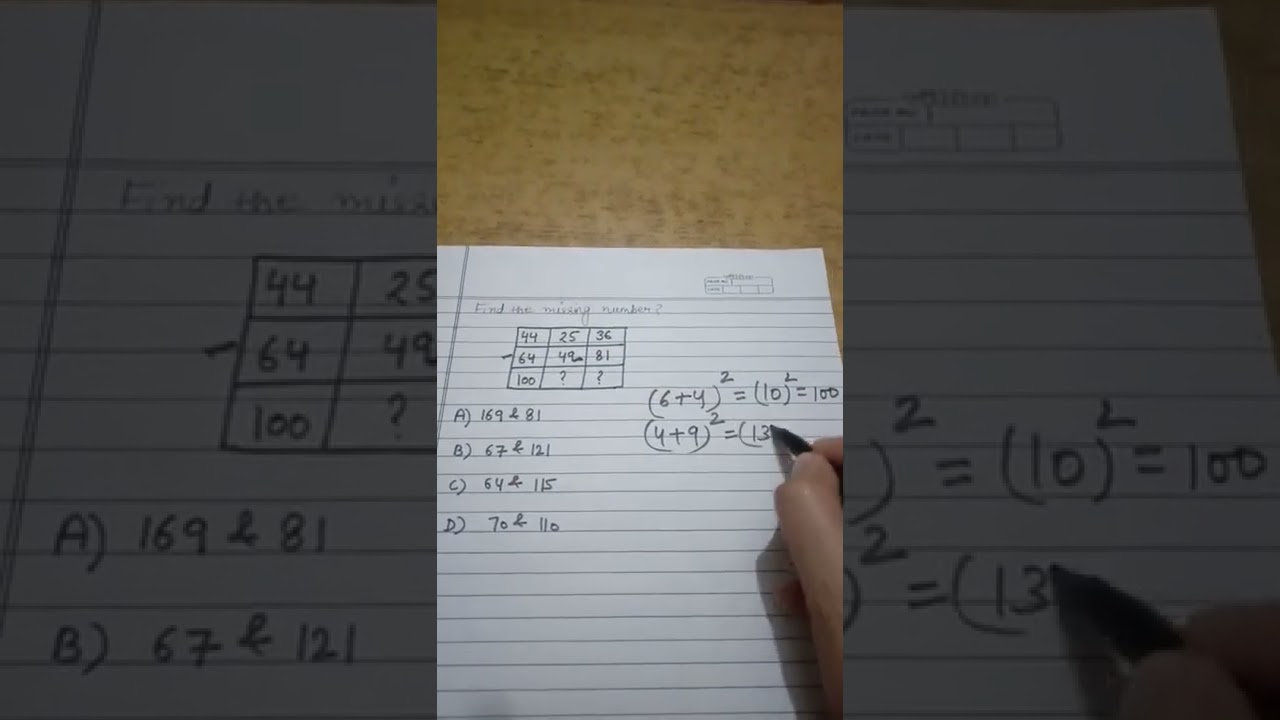 Find the missing number?
44 25 36
64 49 81
100 ? ?
(6+4)² = (10)² = 100
(4+9)² = (13
A) 169 & 81
B) 67 & 121
C) 64 & 115
D) 70 & 110